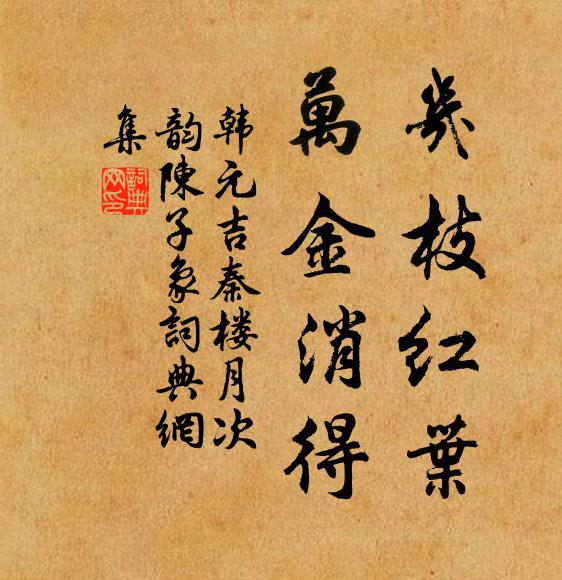 幾枝紅葉
萬金消得
韩元吉秦楼月次
韵陳子象詞典網
集
詞典
网印